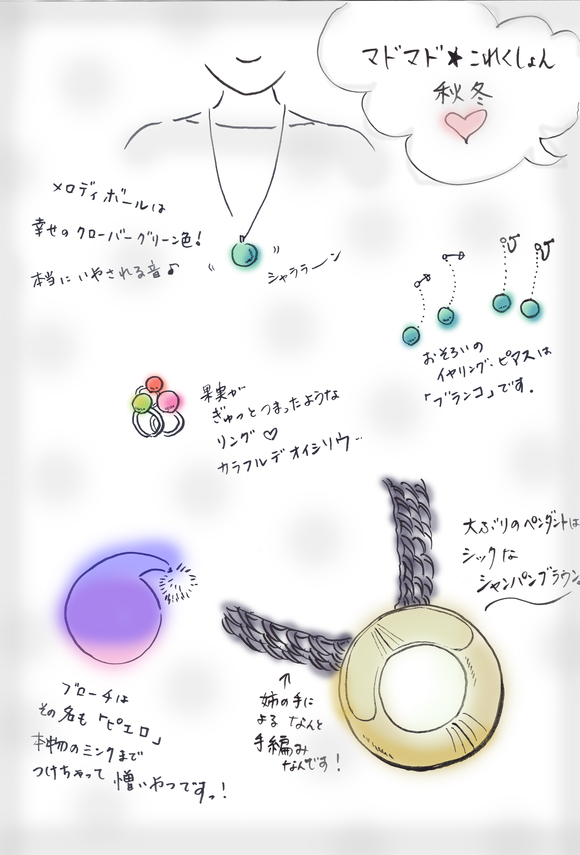 マドマド★これくしょん
秋冬
メロディボールは
幸せのクローバーグリーン色!
本当にいやされる音♪
シャララーン
おそろいの
イヤリング・ピアスは
「ブランコ」です.
果実が
ぎゅっとつまったような
リング♡
カラフルデオイシソウ…
大ぶりのペンダントは
シックな
シャンパンブラウン。
ブローチは
その名も「ピエロ」
本物のミンクまで
つけちゃって 憎いやつですっ!
↑
姉の手に
よる なんと
手編み
なんです!